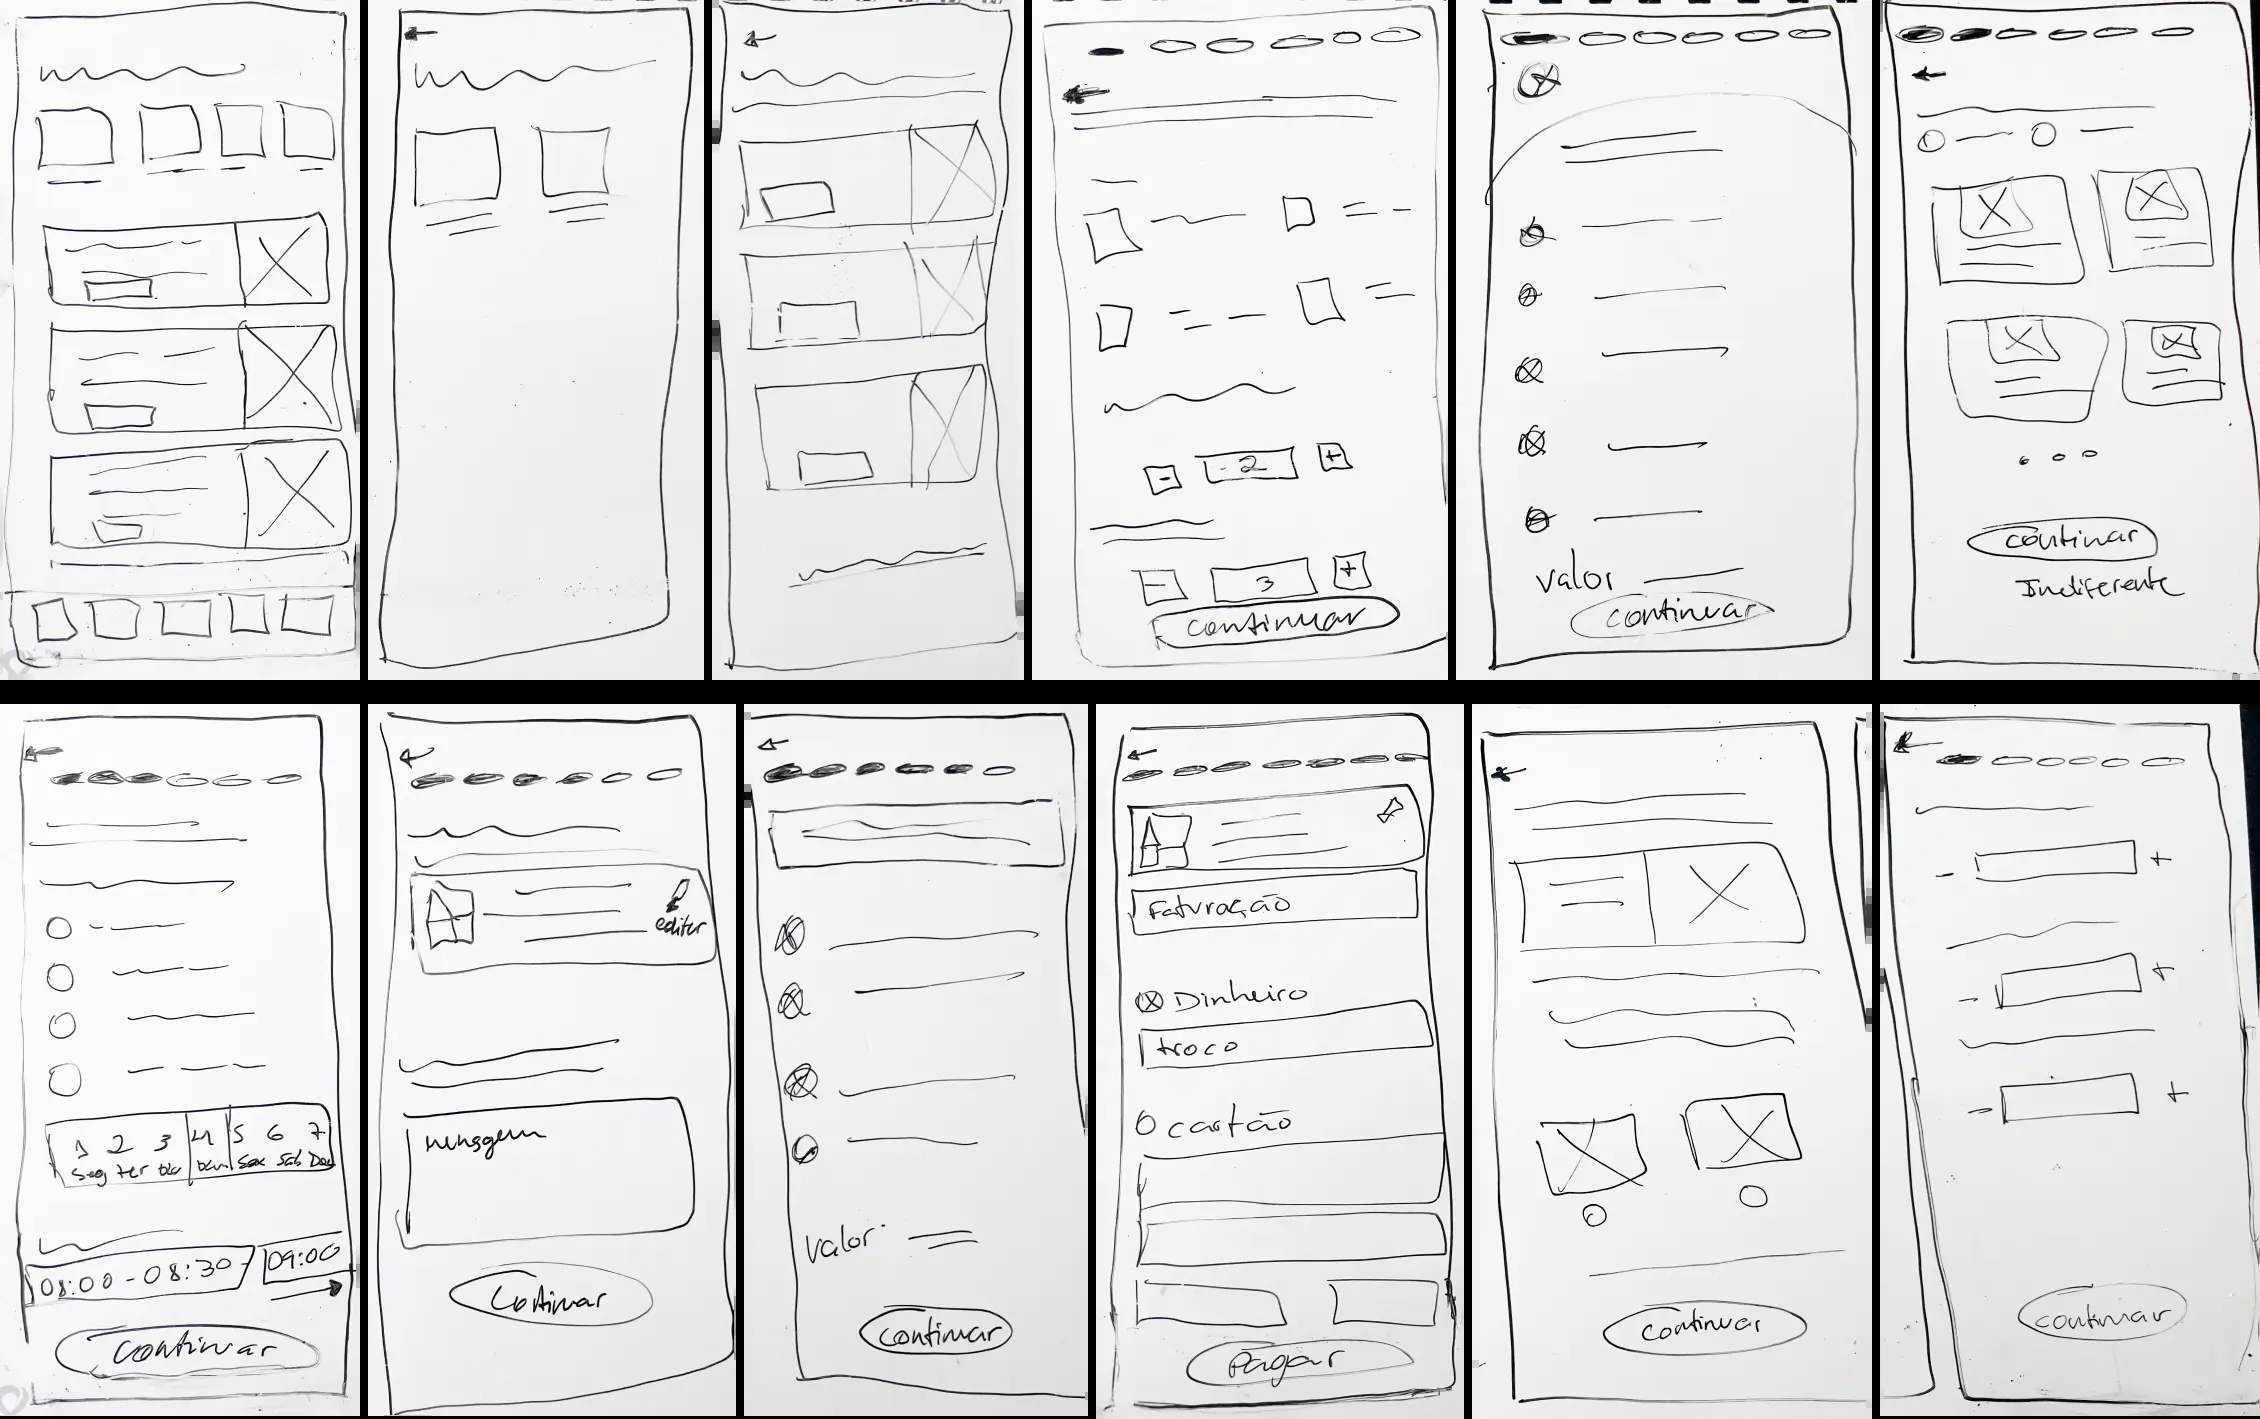 2
+
3
+
continuar
valor
continuar
continuar
Indiferente
1 2 3 4 5 6 7
Seg Ter Sex Sab Dom
08:00 - 08:30
09:00
continuar
editar
mensagem
Continuar
valor
continuar
Faturação
Dinheiro
troco
cartão
Pagar
continuar
+
+
+
continuar